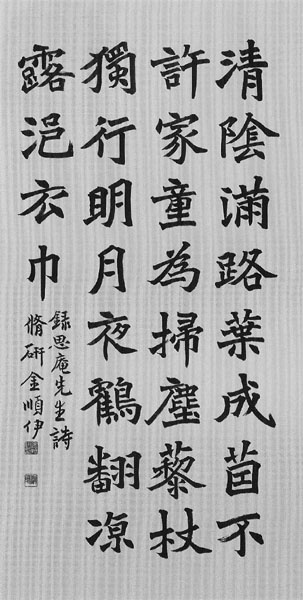 清陰滿路葉成茵不
許家童為掃塵藜杖
獨行明月夜鶴翻凉
露浥衣巾
錄思庵先生詩
脩研金順伊